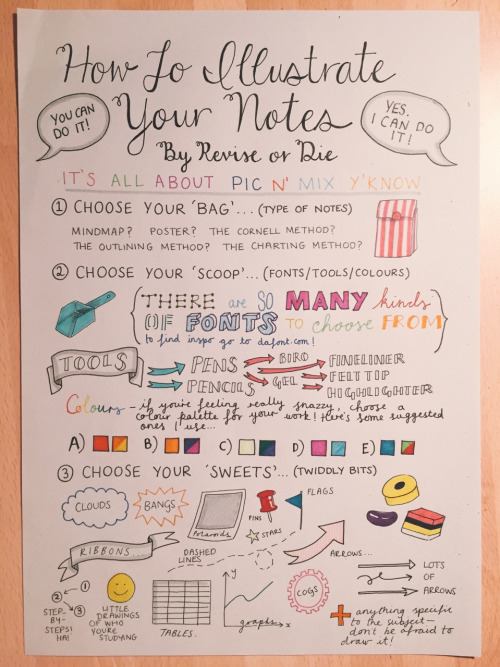 How To Illustrate
Your Notes
YOU CAN
DO IT!
YES,
I CAN DO
IT!
By Revise or Die
IT'S ALL ABOUT PIC N' MIX Y'KNOW
① CHOOSE YOUR 'BAG'... (TYPE OF NOTES)
MINDMAP? POSTER? THE CORNELL METHOD?
THE OUTLINING METHOD? THE CHARTING METHOD?
② CHOOSE YOUR 'SCOOP'... (FONTS/TOOLS/COLOURS)
THERE are SO MANY kinds
OF FONTS TO choose FROM
to find inspo go to dafont.com!
TOOLS
PENS
PENCILS
BIRO
GEL
FINELINER
FELT TIP
HIGHLIGHTER
Colours - if you're feeling really snazzy, choose a
colour palette for your work! Here's some suggested
ones I use...
A) B) C) D) E)
③ CHOOSE YOUR 'SWEETS'... (TWIDDLY BITS)
CLOUDS
BANGS
Polaroids
PINS
FLAGS
STARS
RIBBONS....
DASHED
LINES
ARROWS...
① ② ③
STEP-
BY-
STEPS!
HA!
LITTLE
DRAWINGS
OF WHO
YOU'RE
STUDYING
TABLES.
y
graphs x
COGS
LOTS
OF
ARROWS
+ anything specific
to the subject -
don't be afraid to
draw it!